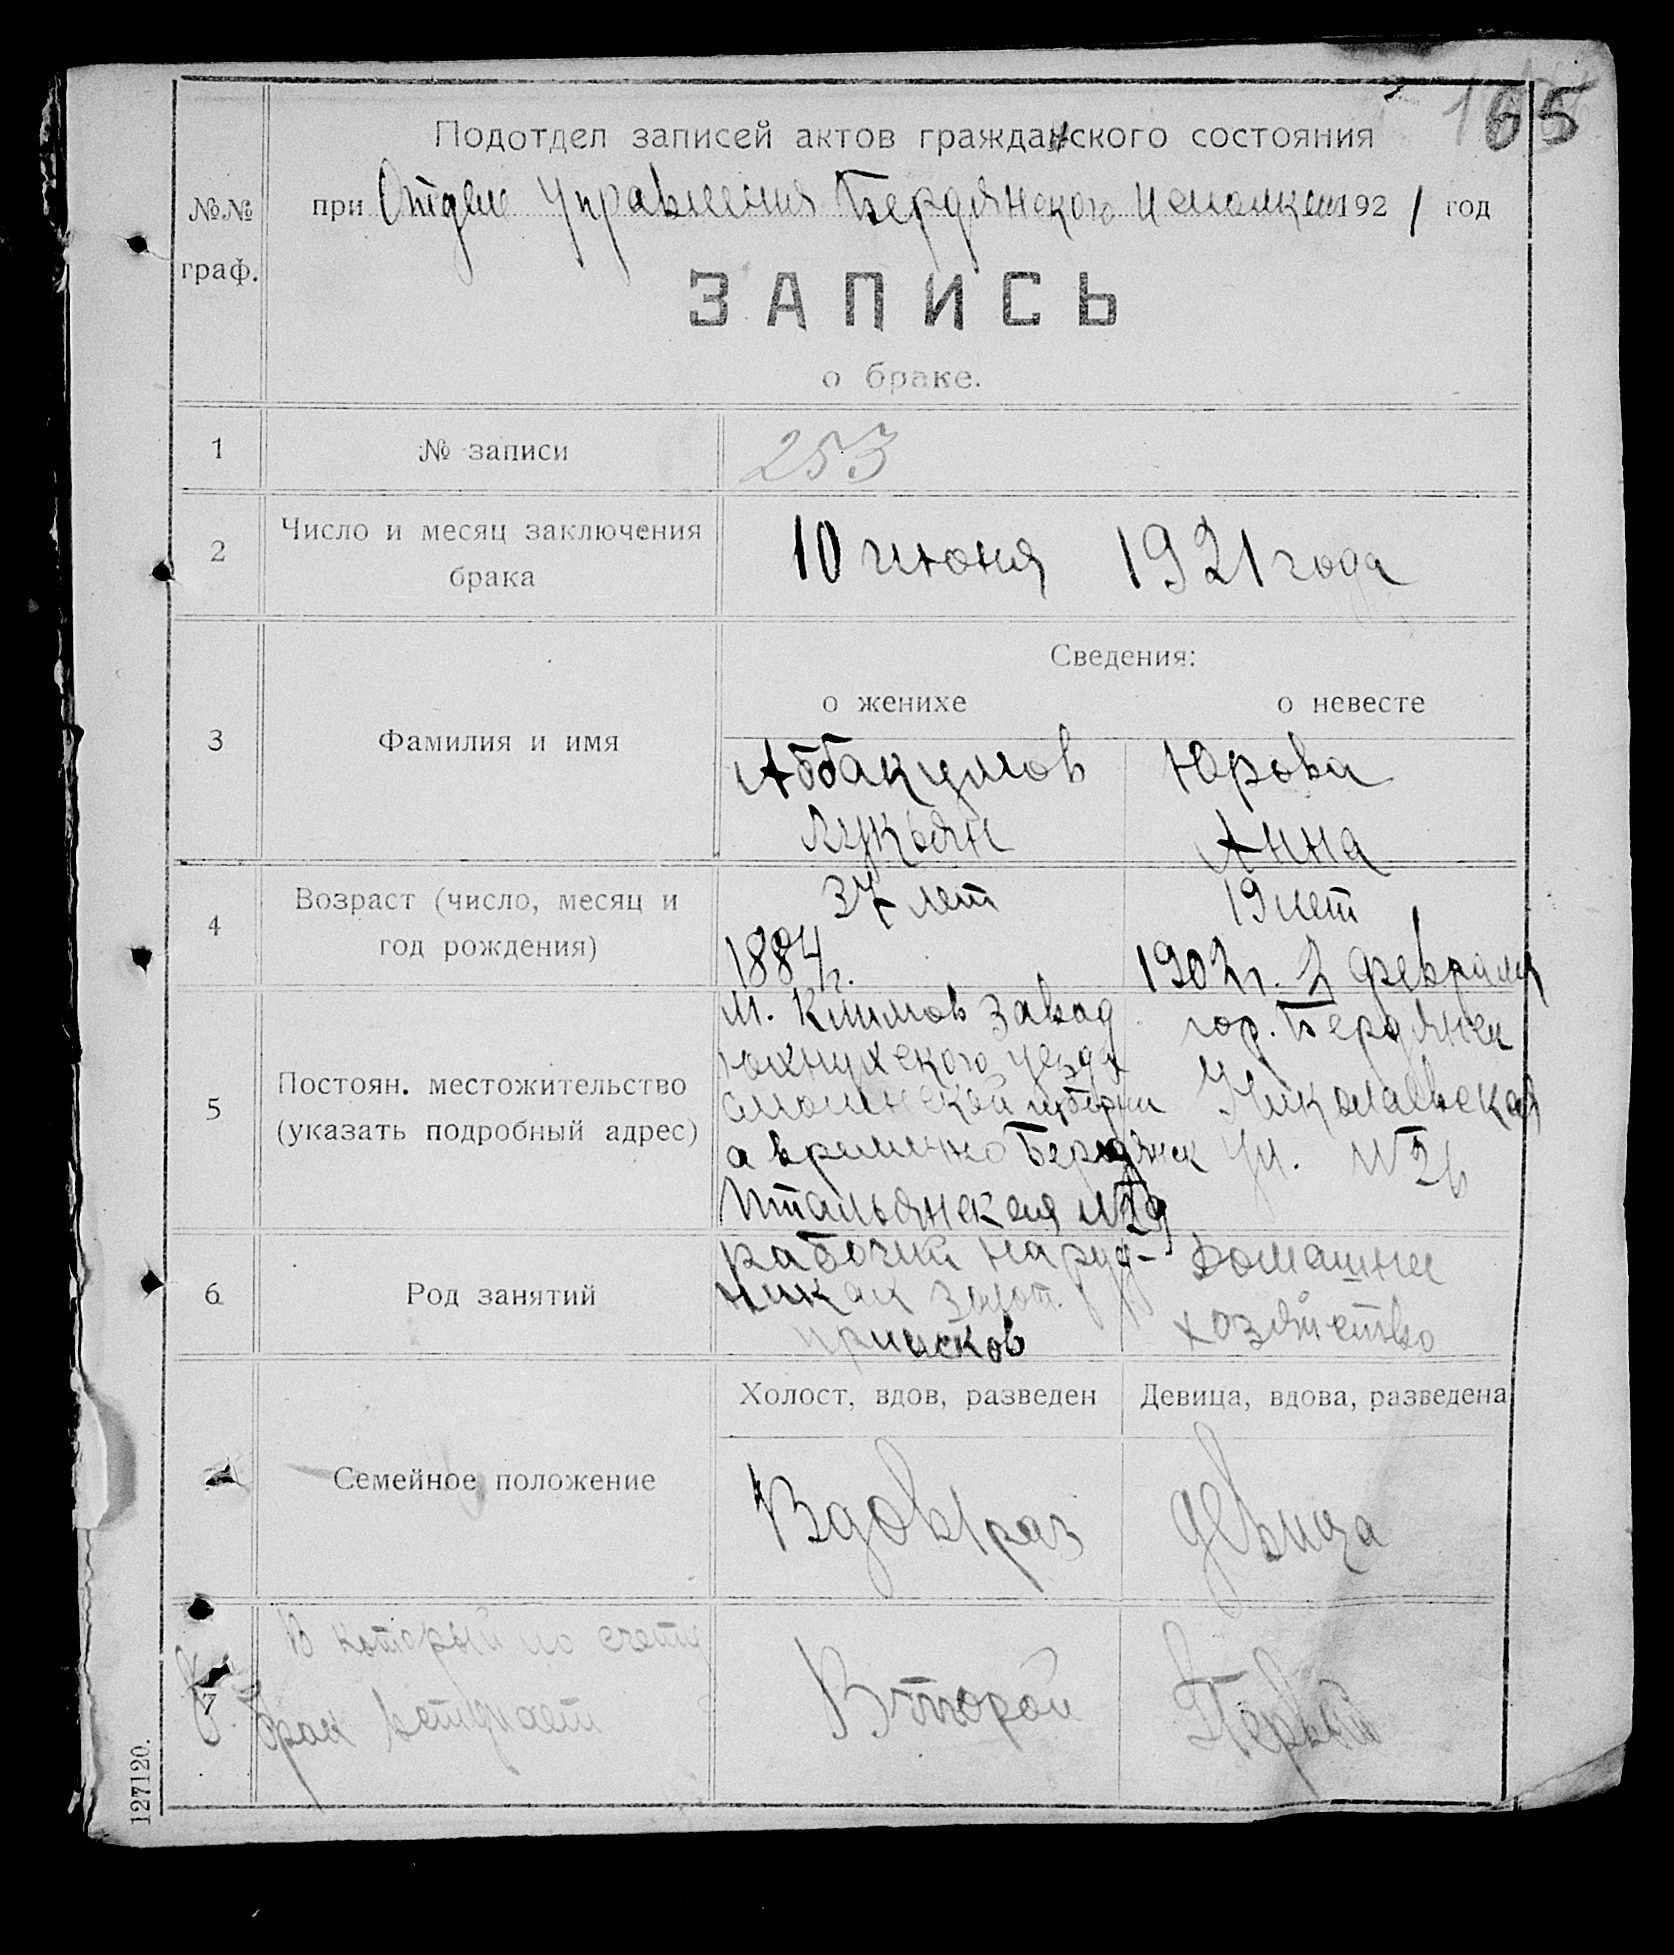 165
Подотдел записей актов гражданского состояния
№№ граф.
при Отделе Управления Бердянского Исполкома 1921 год
ЗАПИСЬ
о браке.
1 № записи 253
2 Число и месяц заключения брака
10 июня 1921 года
Сведения:
о женихе о невесте
3 Фамилия и имя
Аббакумов Юрова
Лукьян Анна
4 Возраст (число, месяц и год рождения)
37 лет 19 лет
1884 г. 1902 г. 2 февраля
5 Постоян. местожительство (указать подробный адрес)
м. Климов Завод гор. Бердянск
Юхнухского уезда
Смоленской губернии Николаевская
а временно Бердянск ул. №
Итальянская №29
6 Род занятий
рабочий на руд- Домашнее
никах золот. хозяйство
приисков
Холост, вдов, разведен Девица, вдова, разведена
Семейное положение
Вдов 1 раз девица
7 В который по счету
брак вступает
Второй Первый
127120.